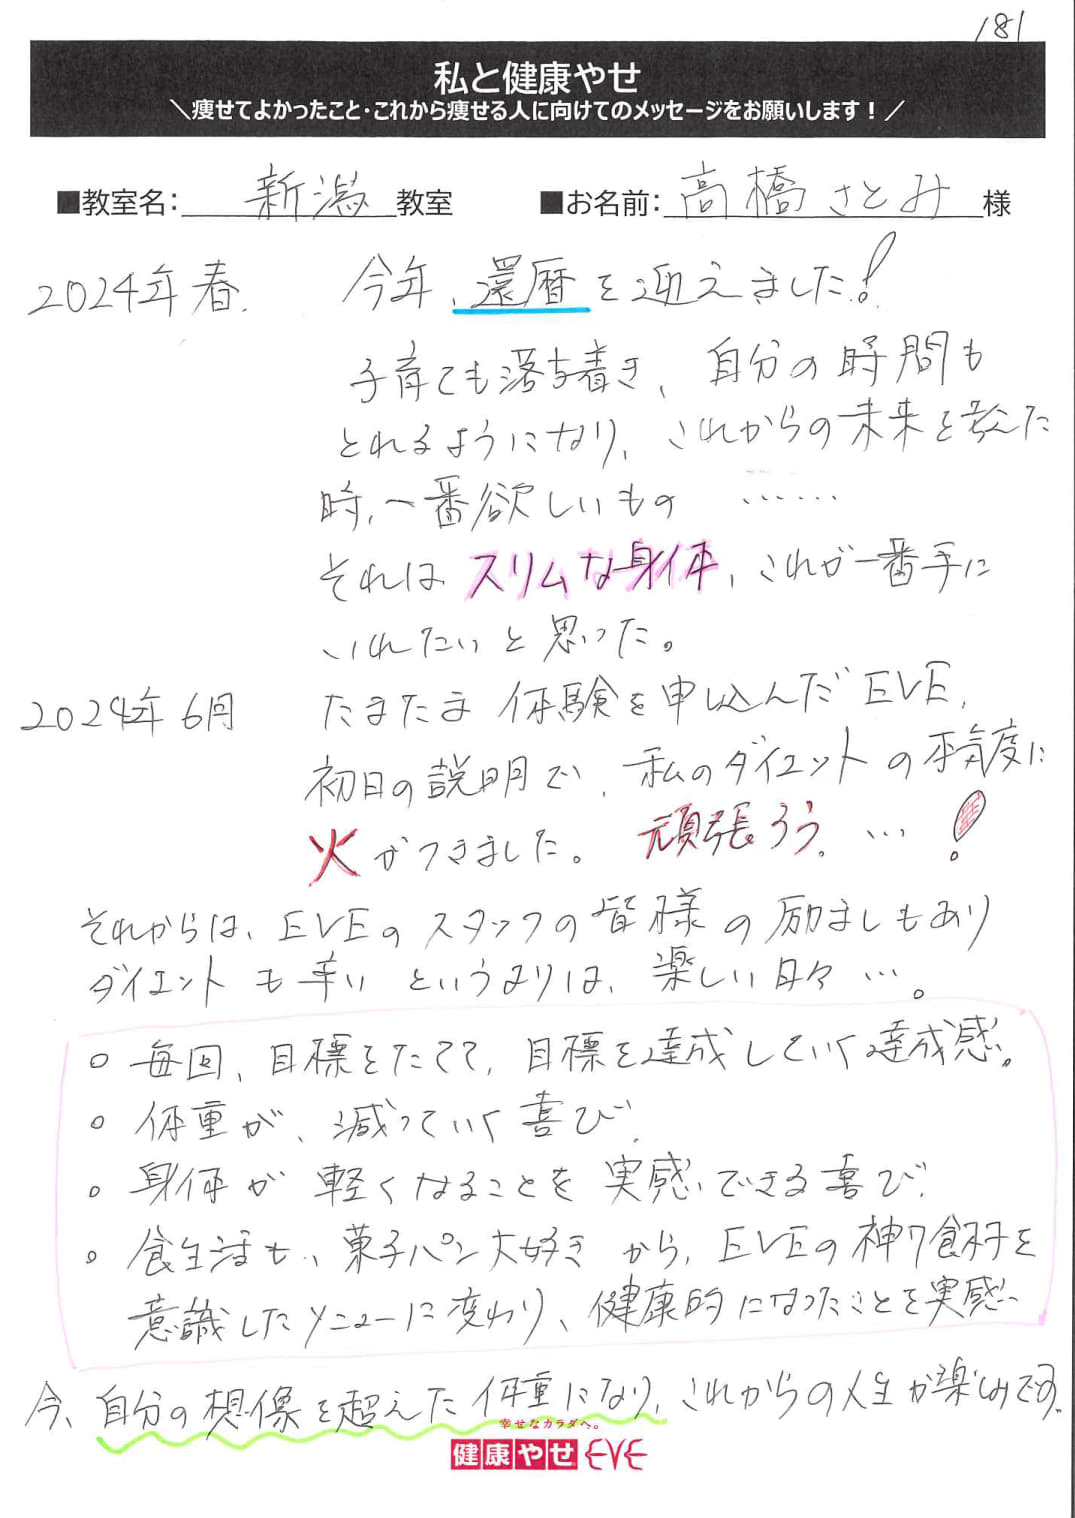 181
私と健康やせ
＼痩せてよかったこと・これから痩せる人に向けてのメッセージをお願いします！／
■教室名：新潟教室 ■お名前：高橋さとみ様
2024年春. 今年、還暦を迎えました！
子育ても落ち着き、自分の時間も
とれるようになり、これからの未来を考えた
時、一番欲しいもの ……
それは スリムな身体、これが一番手に
いれたいと思った。
2024年6月 たまたま体験を申し込んだEVE、
初日の説明で、私のダイエットの本気度に
火がつきました。 頑張ろう。…！
それからは、EVEのスタッフの皆様の励ましもあり
ダイエットも辛いというよりは、楽しい日々…。
○ 毎回、目標をたてて、目標を達成していく達成感。
○ 体重が、減っていく喜び.
○ 身体が軽くなることを実感できる喜び.
○ 食生活も、菓子パン大好きから、EVEの神7食材を
意識したメニューに変わり、健康的になったことを実感
今、自分の想像を超えた体重になり、これからの人生が楽しみです.
幸せなカラダへ。
健康やせEVE